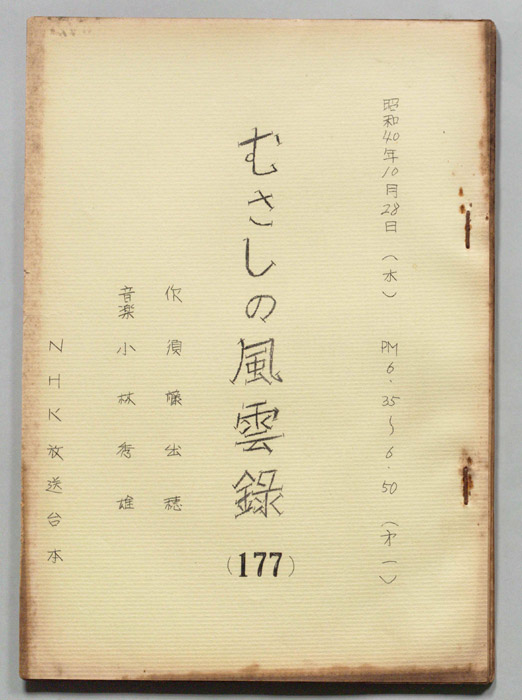 昭和40年10月28日(水) PM6.35~6.50(才一)
むさしの風雲録
(177)
作 須藤出穂
音楽 小林秀雄
NHK放送台本